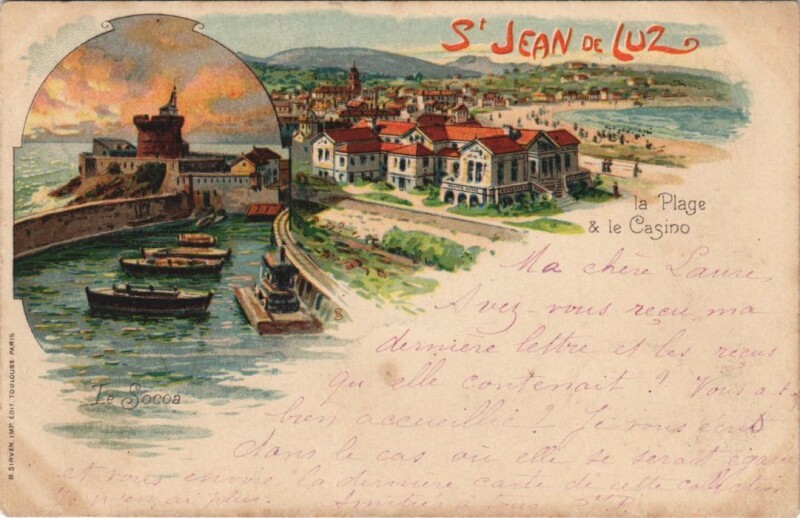 St JEAN DE LUZ
la Plage
& le Casino
Le Socoa
B. SIRVEN, IMP. EDIT. TOULOUSE-PARIS
Ma chère Laure,
Avez-vous reçu ma
dernière lettre et les reçus
qu'elle contenait ? Vous a-t-
bien accueillie ? Je vous écris
dans le cas où elle se serait égarée
et vous envoie la dernière carte de cette collection
je n'en ai plus. Amitiés à tous